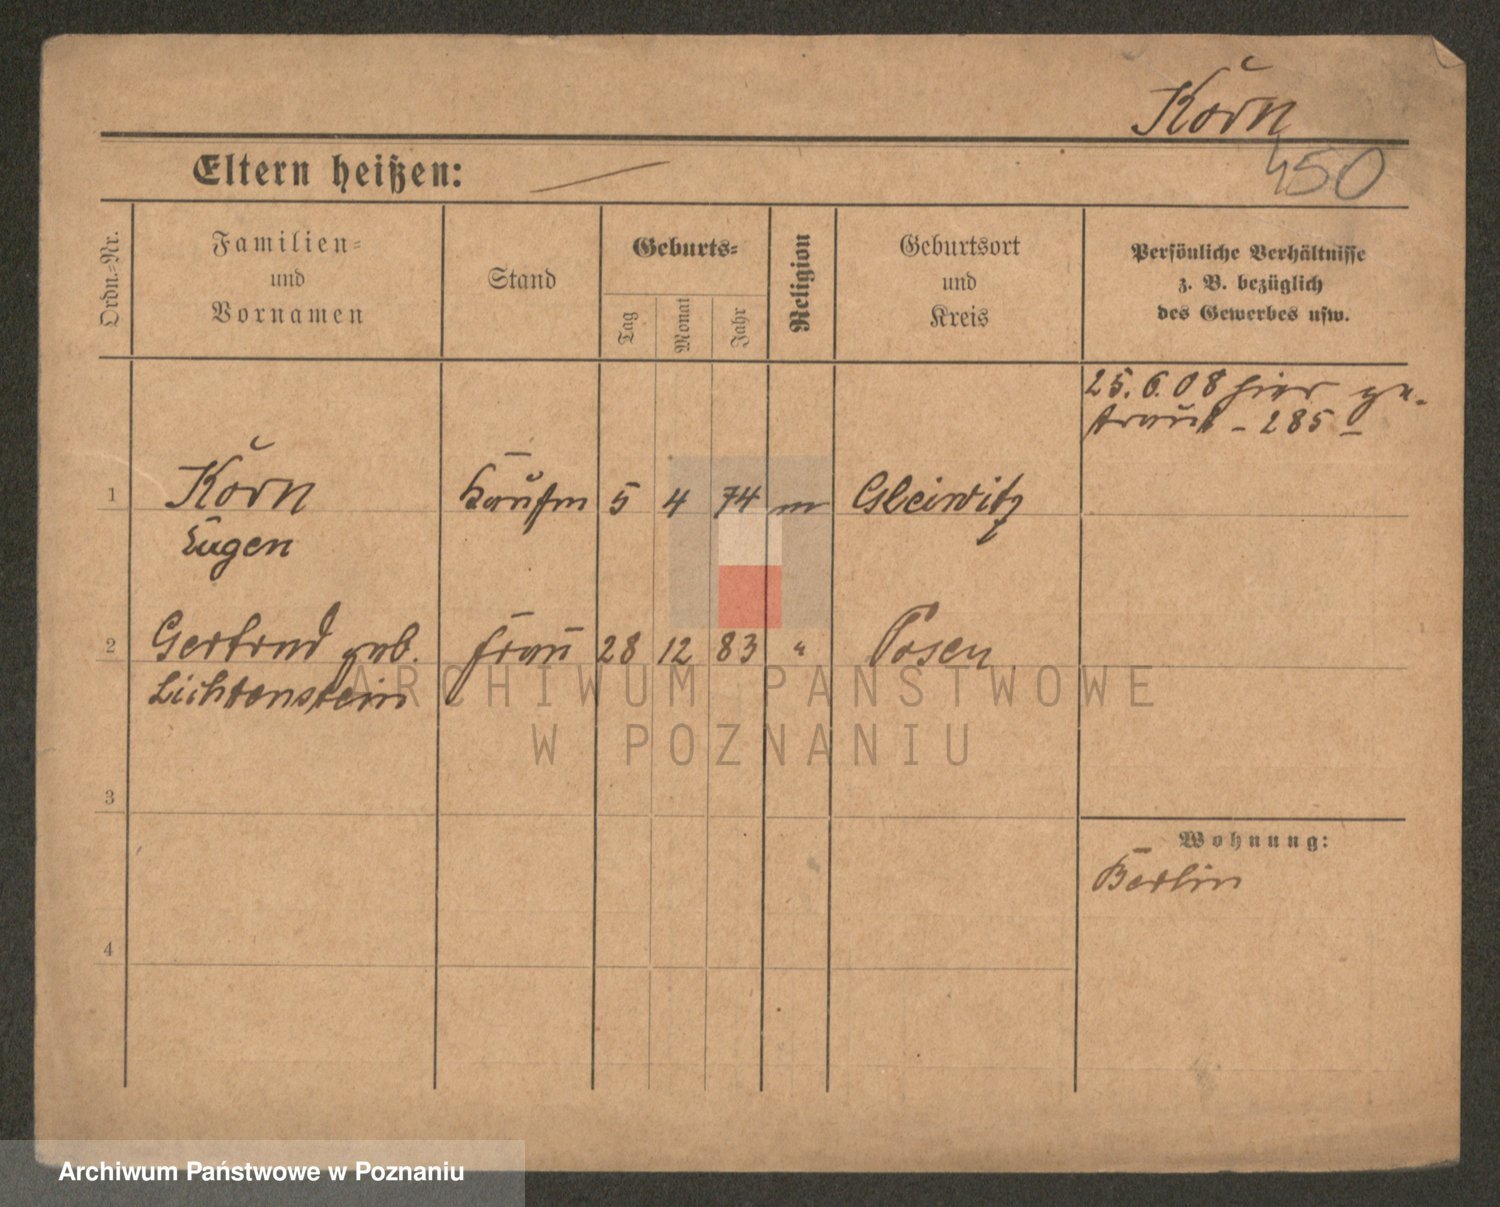 Korn
450
Eltern heißen: —
Ordn.-Nr.
Familien-
und
Vornamen
Stand
Geburts-
Tag
Monat
Jahr
Religion
Geburtsort
und
Kreis
Persönliche Verhältnisse
z. B. bezüglich
des Gewerbes usw.
25. 6. 08 hier ge-
traut - 285 -
1 Korn Kaufm 5 4 74 m Gleiwitz
Eugen
2 Gertrud geb. Frau 28 12 83 " Posen
Lichtenstein
3
4
Wohnung:
Berlin
ARCHIWUM PAŃSTWOWE
W POZNANIU
Archiwum Państwowe w Poznaniu